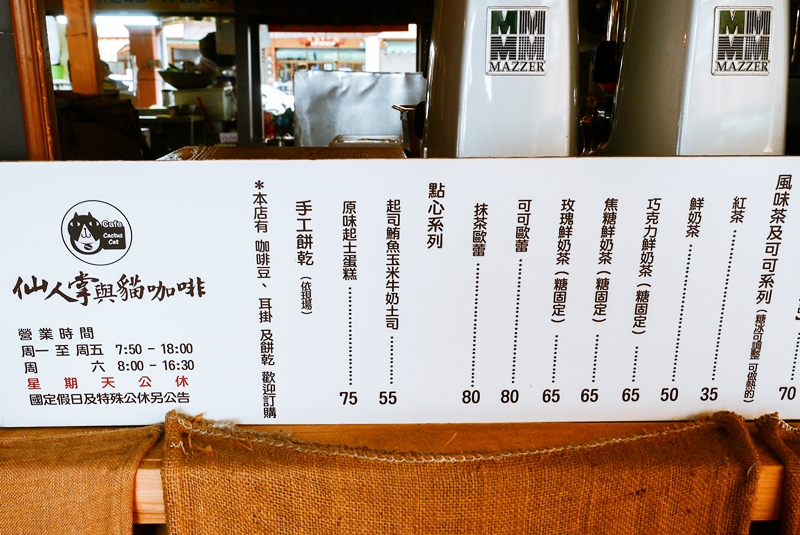 MAZZER
MAZZER
70
風味茶及可可系列 (糖冰可調整 可做熱的)
紅茶 35
鮮奶茶 50
巧克力鮮奶茶 (糖固定) 65
焦糖鮮奶茶 (糖固定) 65
玫瑰鮮奶茶 (糖固定) 65
可可歐蕾 80
抹茶歐蕾 80
點心系列
起司鮪魚玉米牛奶土司 55
原味起士蛋糕 75
手工餅乾 (依現場)
*本店有 咖啡豆、耳掛 及餅乾 歡迎訂購
Cafe
Cactus
Cat
仙人掌與貓咖啡
營業時間
周一 至 周五 7:50 - 18:00
周 六 8:00 - 16:30
星期天公休
國定假日及特殊公休另公告